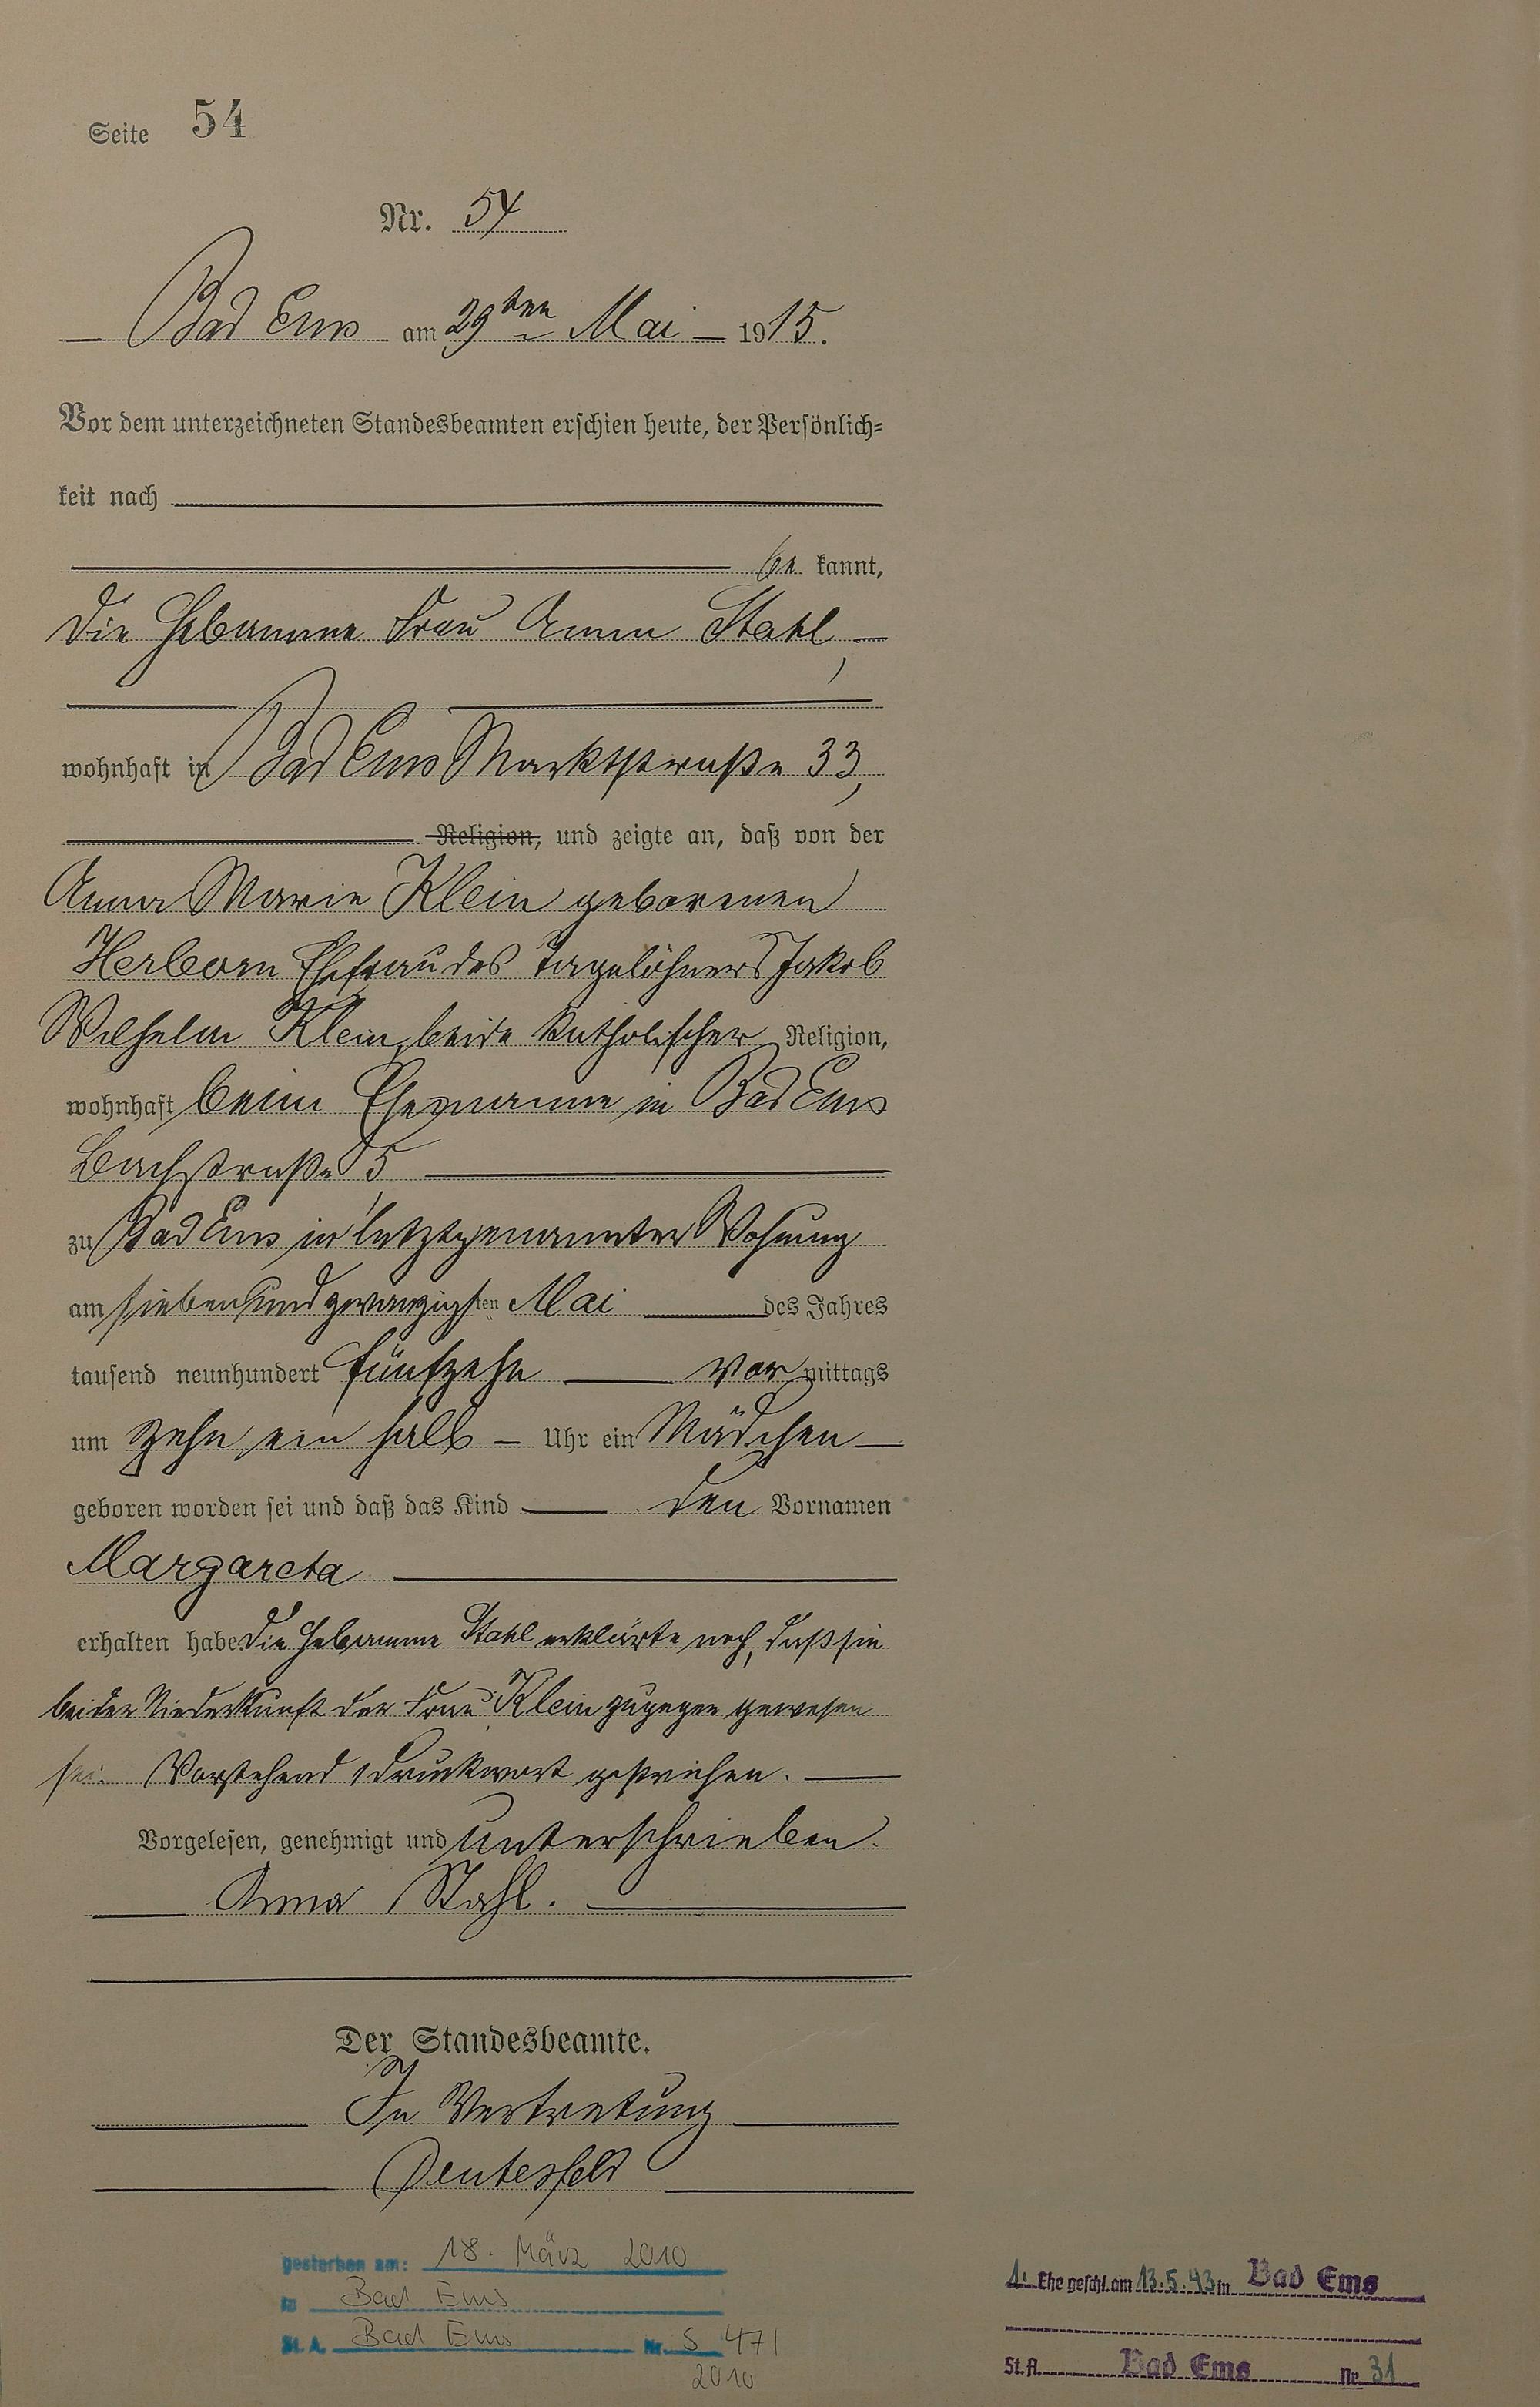 Seite 54
Nr. 54
Bad Ems am 29ten Mai 1915.
Vor dem unterzeichneten Standesbeamten erschien heute, der Persönlich=
keit nach
be kannt,
die Hebamme Frau Anna Stahl,
wohnhaft in Bad Ems Marktstraße 33,
Religion, und zeigte an, daß von der
Anna Marie Klein geborenen
Herborn Ehefrau des Tagelöhners Jakob
Wilhelm Klein, beide katholischer Religion,
wohnhaft beim Ehemanne in Bad Ems
Bachstraße 5
zu Bad Ems in letztgenannter Wohnung
am siebenundzwanzigsten Mai des Jahres
tausend neunhundert fünfzehn Vormittags
um zehn ein halb Uhr ein Mädchen
geboren worden sei und daß das Kind den Vornamen
Margareta
erhalten habe. Die Hebamme Stahl erklärte noch, daß sie
bei der Niederkunft der Frau Klein zugegen gewesen
sei. Vorstehend 1 Druckwort gestrichen.
Vorgelesen, genehmigt und unterschrieben.
Anna Stahl.
Der Standesbeamte.
In Vertretung
gestorben am: 18. März 2010
in Bad Ems
St. A. Bad Ems Nr. S 471
2010
1. Ehe geschl. am 13.5.43 in Bad Ems
St. A. Bad Ems Nr. 31